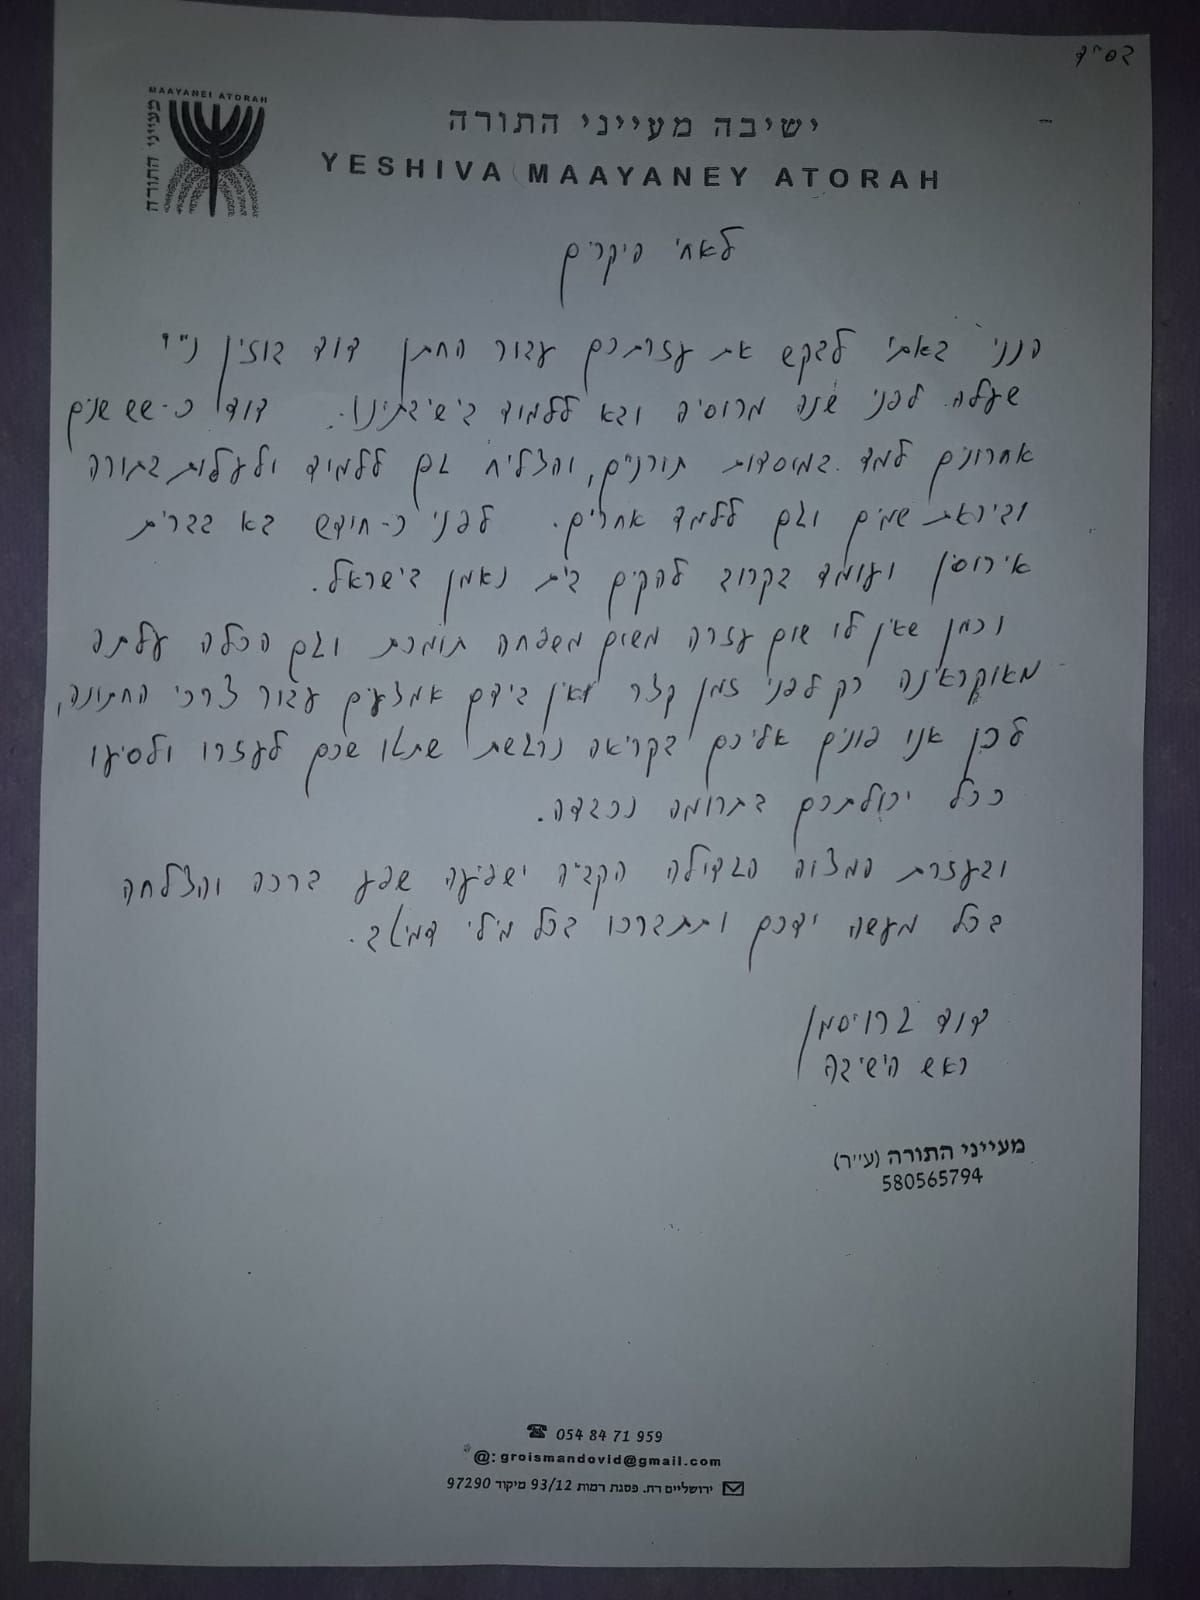 בס"ד
MAAYANEI ATORAH
מעייני התורה
ישיבה מעייני התורה
YESHIVA MAAYANEY ATORAH
לאחי היקרים
הנני באתי לבקש את עזרתכם עבור החתן דוד בוזין נ"י
שעלה לפני שנה מרוסיה ובא ללמוד בישיבתינו. דוד כ-שש שנים
אחרונים למד במוסדות תורניים, והצליח גם ללמוד ולעלות בתורה
וביראת שמים וגם ללמד אחרים. לפני כ-חודש בא בברית
אירוסין ועומד בקרוב להקים בית נאמן בישראל.
וכמן שאין לו שום עזרה משום משפחה תומכת וגם הכלה עלתה
מאוקראינה רק לפני זמן קצר ואין בידם אמצעים עבור צרכי החתונה,
לכן אנו פונים אליכם בקריאה נרגשת שתטו שכם לעזרו ולסיעו
ככל יכולתכם בתרומה נכבדה.
ובעזרת המצוה הגדולה הקב"ה ישפיעה שפע ברכה והצלחה
בכל מעשה ידכם ותתברכו בכל מילי דמיטב.
דוד גרויסמן
ראש הישיבה
מעייני התורה (ע"ר)
580565794
054 84 71 959
@: groismandovid@gmail.com
ירושליים רח. פסגת רמות 93/12 מיקוד 97290